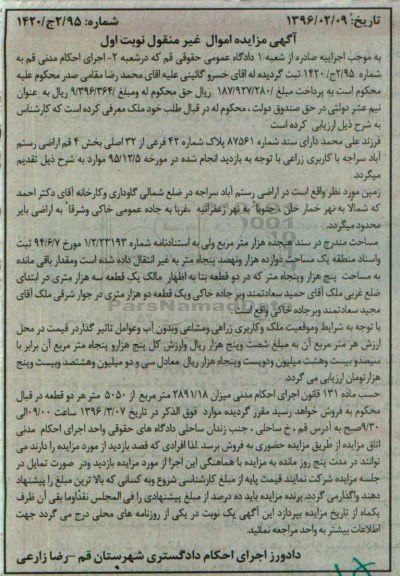 تاریخ: ۱۳۹۶/۰۲/۰۹ شماره: ۲/۹۵ج/۱۴۲۰
آگهی مزایده اموال غیر منقول نوبت اول
به موجب اجراییه صادره از شعبه ۱ دادگاه عمومی حقوقی قم که درشعبه ۲- اجرای احکام مدنی قم به
شماره ۲/۹۵ج/۱۴۲۰ ثبت گردیده له اقای خسرو گائینی علیه اقای محمد رضا مقامی صدر محکوم علیه
محکوم است به پرداخت مبلغ /۱۸۷/۹۲۷/۲۸۰ ریال حق محکوم له ومبلغ /۹/۳۹۶/۳۶۴ ریال به عنوان
نیم عشر دولتی در حق صندوق دولت ، محکوم له در قبال طلب خود ملک معرفی کرده است که کارشناس
به شرح ذیل ارزیابی کرده است
فرزند علی محمد دارای سند شماره ۸۷۵۶۱ پلاک شماره ۴۲ فرعی از ۳۲ اصلی بخش ۴ قم اراضی رستم
آباد سراجه با کاربری زراعی با توجه به بازدید انجام شده در مورخه ۹۵/۱۲/۵ موارد به شرح ذیل تقدیم
میگردد.
زمین مورد نظر واقع است در اراضی رستم آباد سراجه در ضلع شمالی گاوداری وکارخانه آقای دکتر احمد
که شمالا به نهر خمار خان جنوبا" به نهر زعفرانیه غربا به جاده عمومی خاکی وشرقا" به اراضی بایر
محدود میگردد.
مساحت مندرج در سند هیجده هزار متر مربع ولی به استنادنامه شماره ۱/۲/۲۳۱۹۳ مورخ ۹۴/۶/۷ ثبت
واسناد منطقه یک مساحت دوازده هزار ونهصد پنجاه متر به غیر انتقال داده شده است ومقدار باقی مانده
به مساحت پنج هزار وپنجاه متر که در دو قطعه بنا به اظهار مالک یک قطعه سه هزار متری در ابتدای
ضلع غربی ملک آقای حمید سعادتمند وبر جاده خاکی ویک قطعه دو هزار متری در جوار شرقی ملک آقای
مجید سعادتمند وبر جاده خاکی واقع است
با توجه به شرایط وموقعیت ملک وکاربری زراعی ومشاعی وبدون آب وعوامل تاثیر گذاردر قیمت در محل
ارزش هر متر مربع آن به مبلغ شصت وپنج هزار ریال وارزش کل پنج هزارو پنجاه متر مربع آن برابر با
سیصدو بیست وهشت میلیون ودویست وپنجاه هزار ریال معادل سی و دو میلیون وهشتصد وبیست وپنج
هزار تومان ارزیابی می گردد.
حسب ماده ۱۳۱ قانون اجرای احکام مدنی میزان ۲۸۹۱/۱۸ متر مربع از ۵۰۵۰ متر هر دو قطعه در قبال
محکوم به فروش خواهد رسید مقرر گردیده موارد فوق الذکر در تاریخ ۱۳۹۶ /۳/۰۷ ساعت ۰۹/۰۰الی
۹/۳۰صبح به آدرس قم ، خ ساحلی ، جنب زندان ساحلی دادگاه های حقوقی واحد اجرای احکام مدنی
اتاق مزایده از طریق مزایده حضوری به فروش برسد .لذا افرادی که قصد بازدید از مورد مزایده را دارند می
توانند در مدت پنج روز مانده به مزایده با هماهنگی این اجرا از مورد مزایده بازدید ودر صورت تمایل در
جلسه مزایده شرکت نمایند قیمت پایه از مبلغ کارشناسی شروع وبه کسانی که بالا ترین مبلغ را پیشنهاد
دهند واگذار می گردد. برنده مزایده باید ده درصد از مبلغ پیشنهادی را فی المجلس نقداوما بقی آن ظرف
یکماه از تاریخ مزایده بپردازد این آگهی یک نوبت در یکی از روزنامه های محلی درج می گردد جهت
اطلاعات بیشتر به واحد مراجعه نمائید.
دادورز اجرای احکام دادگستری شهرستان قم -رضا زارعی